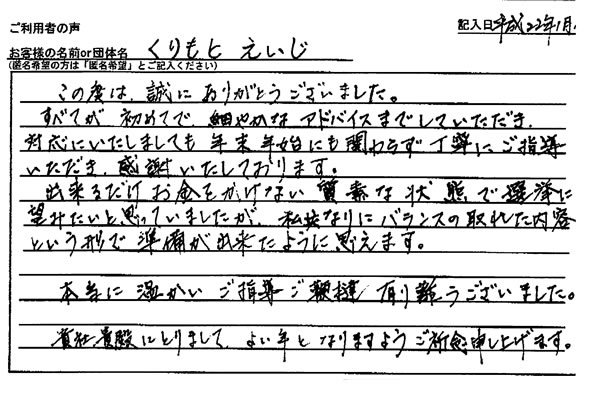 ご利用者の声
記入日 平成22年1月
お客様の名前or団体名 くりもと えいじ
(匿名希望の方は「匿名希望」とご記入ください)
この度は、誠にありがとうございました。
すべてが初めてで、細やかなアドバイスまでしていただき、
対応にいたしましても年末年始にも関わらず丁寧にご指導
いただき、感謝いたしております。
出来るだけお金をかけない質素な状態で選挙に
望みたいと思っていましたが、私共なりにバランスの取れた内容
という形で準備が出来たように思えます。
本当に温かいご指導ご鞭撻有り難うございました。
貴社貴殿にとりまして、よい年となりますようご祈念申し上げます。